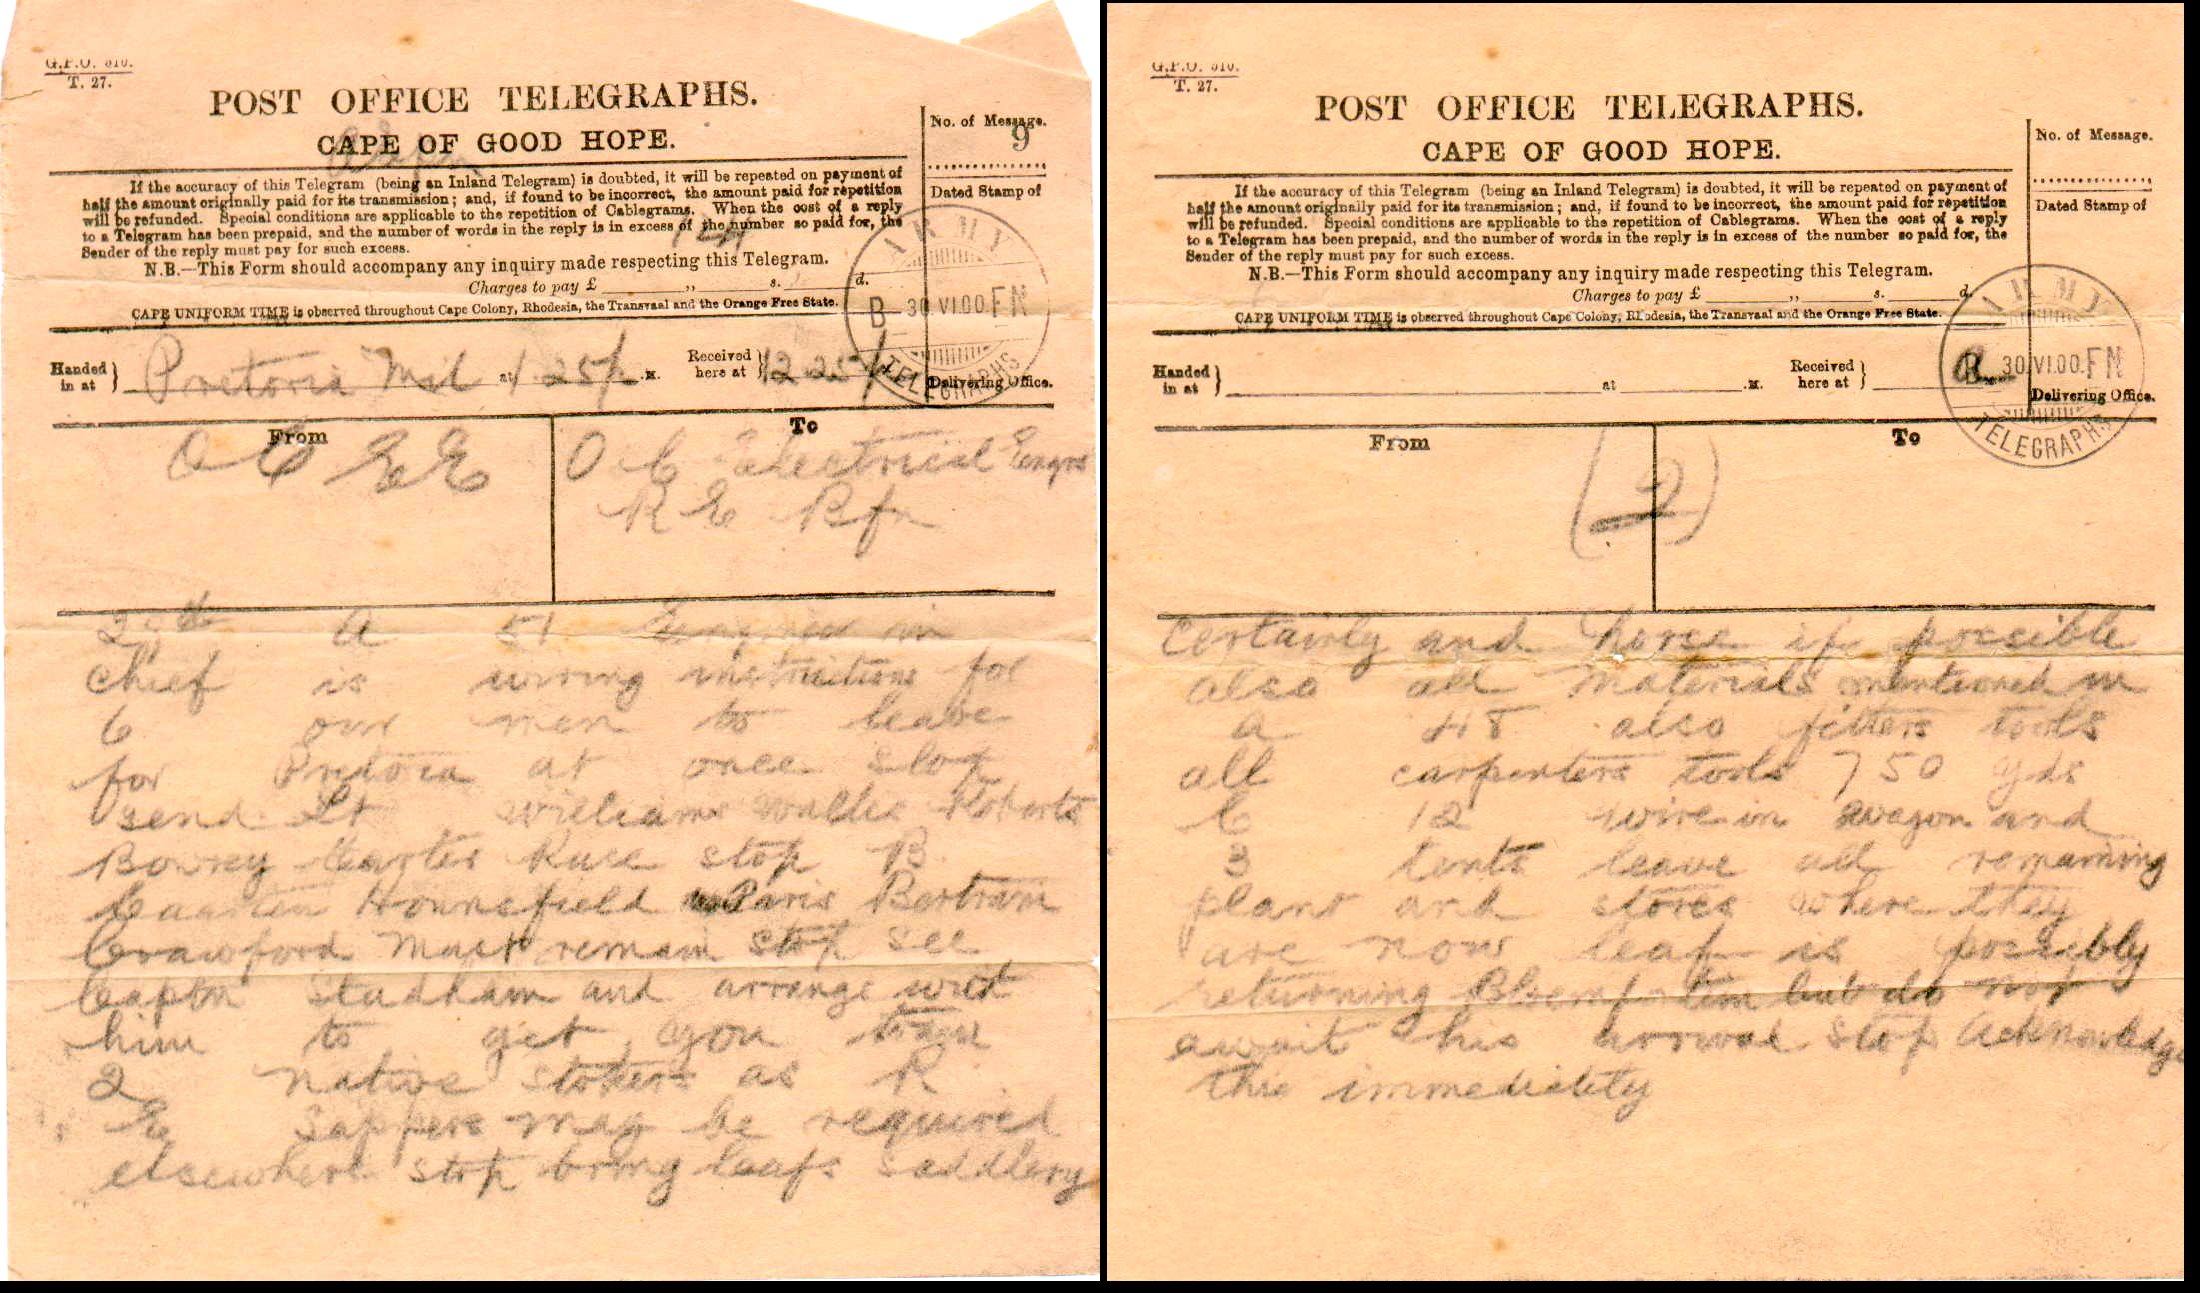 G.P.O. 310.
T. 27.
POST OFFICE TELEGRAPHS.
CAPE OF GOOD HOPE.
No. of Message.
9
If the accuracy of this Telegram (being an Inland Telegram) is doubted, it will be repeated on payment of
half the amount originally paid for its transmission; and, if found to be incorrect, the amount paid for repetition
will be refunded. Special conditions are applicable to the repetition of Cablegrams. When the cost of a reply
to a Telegram has been prepaid, and the number of words in the reply is in excess of the number so paid for, the
Sender of the reply must pay for such excess.
N.B.—This Form should accompany any inquiry made respecting this Telegram.
Charges to pay £ ,, s. d.
CAPE UNIFORM TIME is observed throughout Cape Colony, Rhodesia, the Transvaal and the Orange Free State.
Dated Stamp of
ARMY
B 30 VI.00 FN
TELEGRAPHS
Delivering Office.
Handed in at } Pretoria Mil at 1.25p .M. Received here at } 12 25
From
O C E E
To
O C Electrical Engrs
R E Bfn
A 51 Engineer in
chief is wiring instructions for
6 our men to leave
for Pretoria at once stop
send Lt Williams Wallis Roberts
Bowrey Carter Rule stop B
Hounsfield Paris Bertram
Crawford must remain stop see
Captn Stadham and arrange with
him to get you train
2 native stokers as R
E Sappers may be required
elsewhere stop bring leafs saddlery
G.P.O. 310.
T. 27.
POST OFFICE TELEGRAPHS.
CAPE OF GOOD HOPE.
No. of Message.
If the accuracy of this Telegram (being an Inland Telegram) is doubted, it will be repeated on payment of
half the amount originally paid for its transmission; and, if found to be incorrect, the amount paid for repetition
will be refunded. Special conditions are applicable to the repetition of Cablegrams. When the cost of a reply
to a Telegram has been prepaid, and the number of words in the reply is in excess of the number so paid for, the
Sender of the reply must pay for such excess.
N.B.—This Form should accompany any inquiry made respecting this Telegram.
Charges to pay £ ,, s. d.
CAPE UNIFORM TIME is observed throughout Cape Colony, Rhodesia, the Transvaal and the Orange Free State.
Dated Stamp of
ARMY
B 30 VI.00 FN
TELEGRAPHS
Delivering Office.
Handed in at } at .M. Received here at }
From
To
(2)
Certainly and horse if possible
also all materials mentioned in
a 48 also fitters tools
all carpenters tools 750 yds
C 12 wire in wagon and
3 tents leave all remaining
plant and stores where they
are now leaf is possibly
returning Bloemfontein but do not
await his arrival stop Acknowledge
this immediately